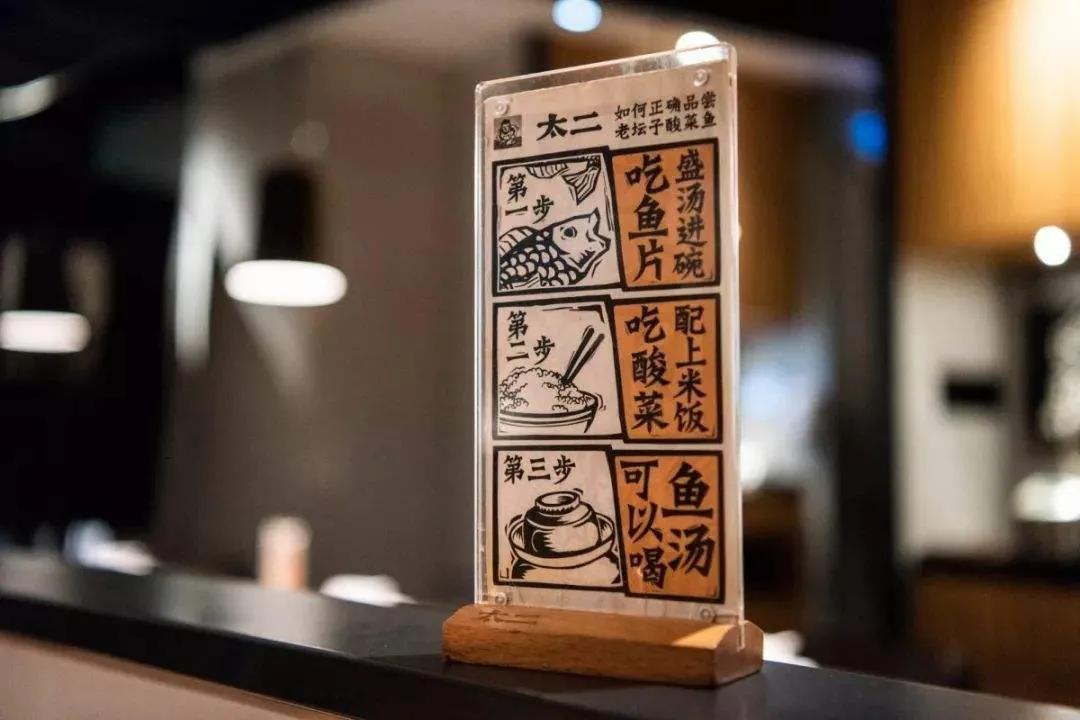 太二
如何正确品尝
老坛子酸菜鱼
第一步
盛汤进碗
吃鱼片
第二步
配上米饭
吃酸菜
第三步
鱼汤
可以喝
太二